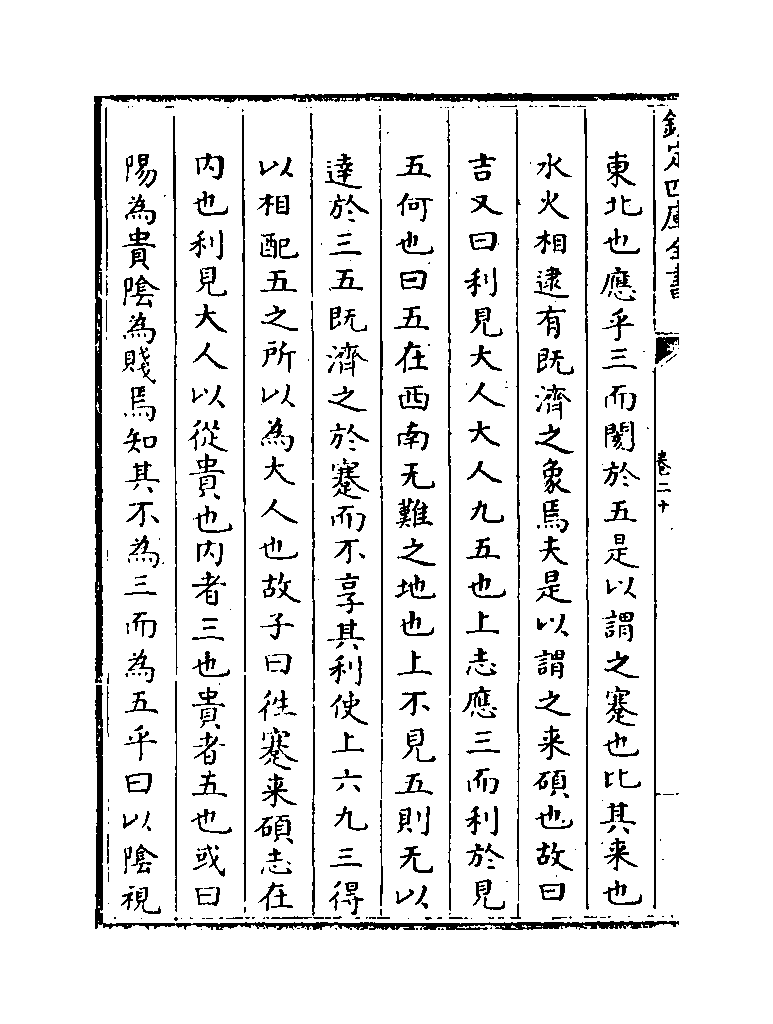 欽定四庫全書
卷二十
東北也應乎三而閡於五是以謂之蹇也比其来也
水火相逮有既濟之象焉夫是以謂之来碩也故曰
吉又曰利見大人大人九五也上志應三而利於見
五何也曰五在西南无難之地也上不見五則无以
達於三五既濟之於蹇而不享其利使上六九三得
以相配五之所以為大人也故子曰徃蹇来碩志在
内也利見大人以從貴也内者三也貴者五也或曰
陽為貴陰為賤焉知其不為三而為五乎曰以陰視